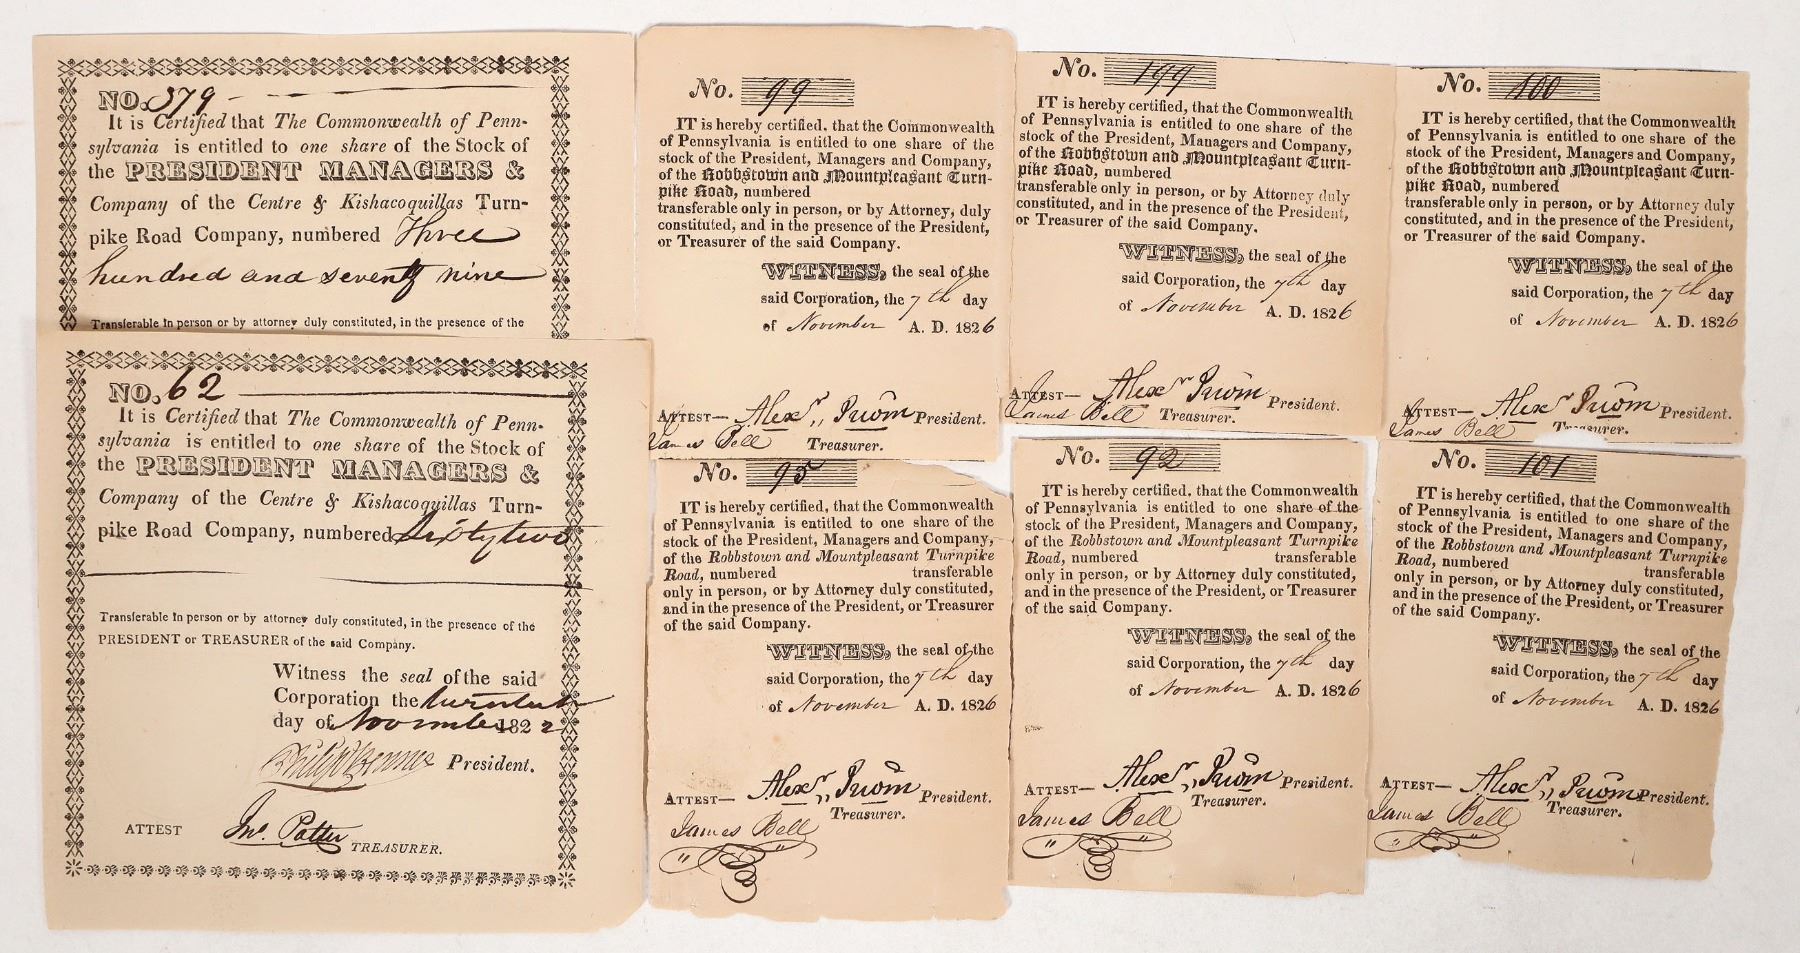 NO. 379
It is Certified that The Commonwealth of Penn-
sylvania is entitled to one share of the Stock of
the PRESIDENT MANAGERS &
Company of the Centre & Kishacoquillas Turn-
pike Road Company, numbered Three
hundred and seventy nine
Transferable in person or by attorney duly constituted, in the presence of the
NO. 62
It is Certified that The Commonwealth of Penn-
sylvania is entitled to one share of the Stock of
the PRESIDENT MANAGERS &
Company of the Centre & Kishacoquillas Turn-
pike Road Company, numbered Sixty two
Transferable in person or by attorney duly constituted, in the presence of the
PRESIDENT or TREASURER of the said Company.
Witness the seal of the said
Corporation the
day of November 1822
President.
ATTEST Jno. Potter TREASURER.
No. 99
IT is hereby certified, that the Commonwealth
of Pennsylvania is entitled to one share of the
stock of the President, Managers and Company,
of the Robbstown and Mountpleasant Turn-
pike Road, numbered
transferable only in person, or by Attorney, duly
constituted, and in the presence of the President,
or Treasurer of the said Company.
WITNESS, the seal of the
said Corporation, the 7th day
of November A. D. 1826
ATTEST— Alexr President.
James Bell Treasurer.
No. 199
IT is hereby certified, that the Commonwealth
of Pennsylvania is entitled to one share of the
stock of the President, Managers and Company,
of the Robbstown and Mountpleasant Turn-
pike Road, numbered
transferable only in person, or by Attorney duly
constituted, and in the presence of the President,
or Treasurer of the said Company.
WITNESS, the seal of the
said Corporation, the 7th day
of November A. D. 1826
ATTEST— Alexr President.
James Bell Treasurer.
No. 100
IT is hereby certified, that the Commonwealth
of Pennsylvania is entitled to one share of the
stock of the President, Managers and Company,
of the Robbstown and Mountpleasant Turn-
pike Road, numbered
transferable only in person, or by Attorney duly
constituted, and in the presence of the President,
or Treasurer of the said Company.
WITNESS, the seal of the
said Corporation, the 7th day
of November A. D. 1826
ATTEST— Alexr President.
James Bell Treasurer.
No. 95
IT is hereby certified, that the Commonwealth
of Pennsylvania is entitled to one share of the
stock of the President, Managers and Company,
of the Robbstown and Mountpleasant Turnpike
Road, numbered transferable
only in person, or by Attorney duly constituted,
and in the presence of the President, or Treasurer
of the said Company.
WITNESS, the seal of the
said Corporation, the 7th day
of November A. D. 1826
ATTEST— Alexr President.
James Bell Treasurer.
No. 92
IT is hereby certified, that the Commonwealth
of Pennsylvania is entitled to one share of the
stock of the President, Managers and Company,
of the Robbstown and Mountpleasant Turnpike
Road, numbered transferable
only in person, or by Attorney duly constituted,
and in the presence of the President, or Treasurer
of the said Company.
WITNESS, the seal of the
said Corporation, the 7th day
of November A. D. 1826
ATTEST— Alexr President.
James Bell Treasurer.
No. 101
IT is hereby certified, that the Commonwealth
of Pennsylvania is entitled to one share of the
stock of the President, Managers and Company,
of the Robbstown and Mountpleasant Turnpike
Road, numbered transferable
only in person, or by Attorney duly constituted,
and in the presence of the President, or Treasurer
of the said Company.
WITNESS, the seal of the
said Corporation, the 7th day
of November A. D. 1826
ATTEST— Alexr President.
James Bell Treasurer.